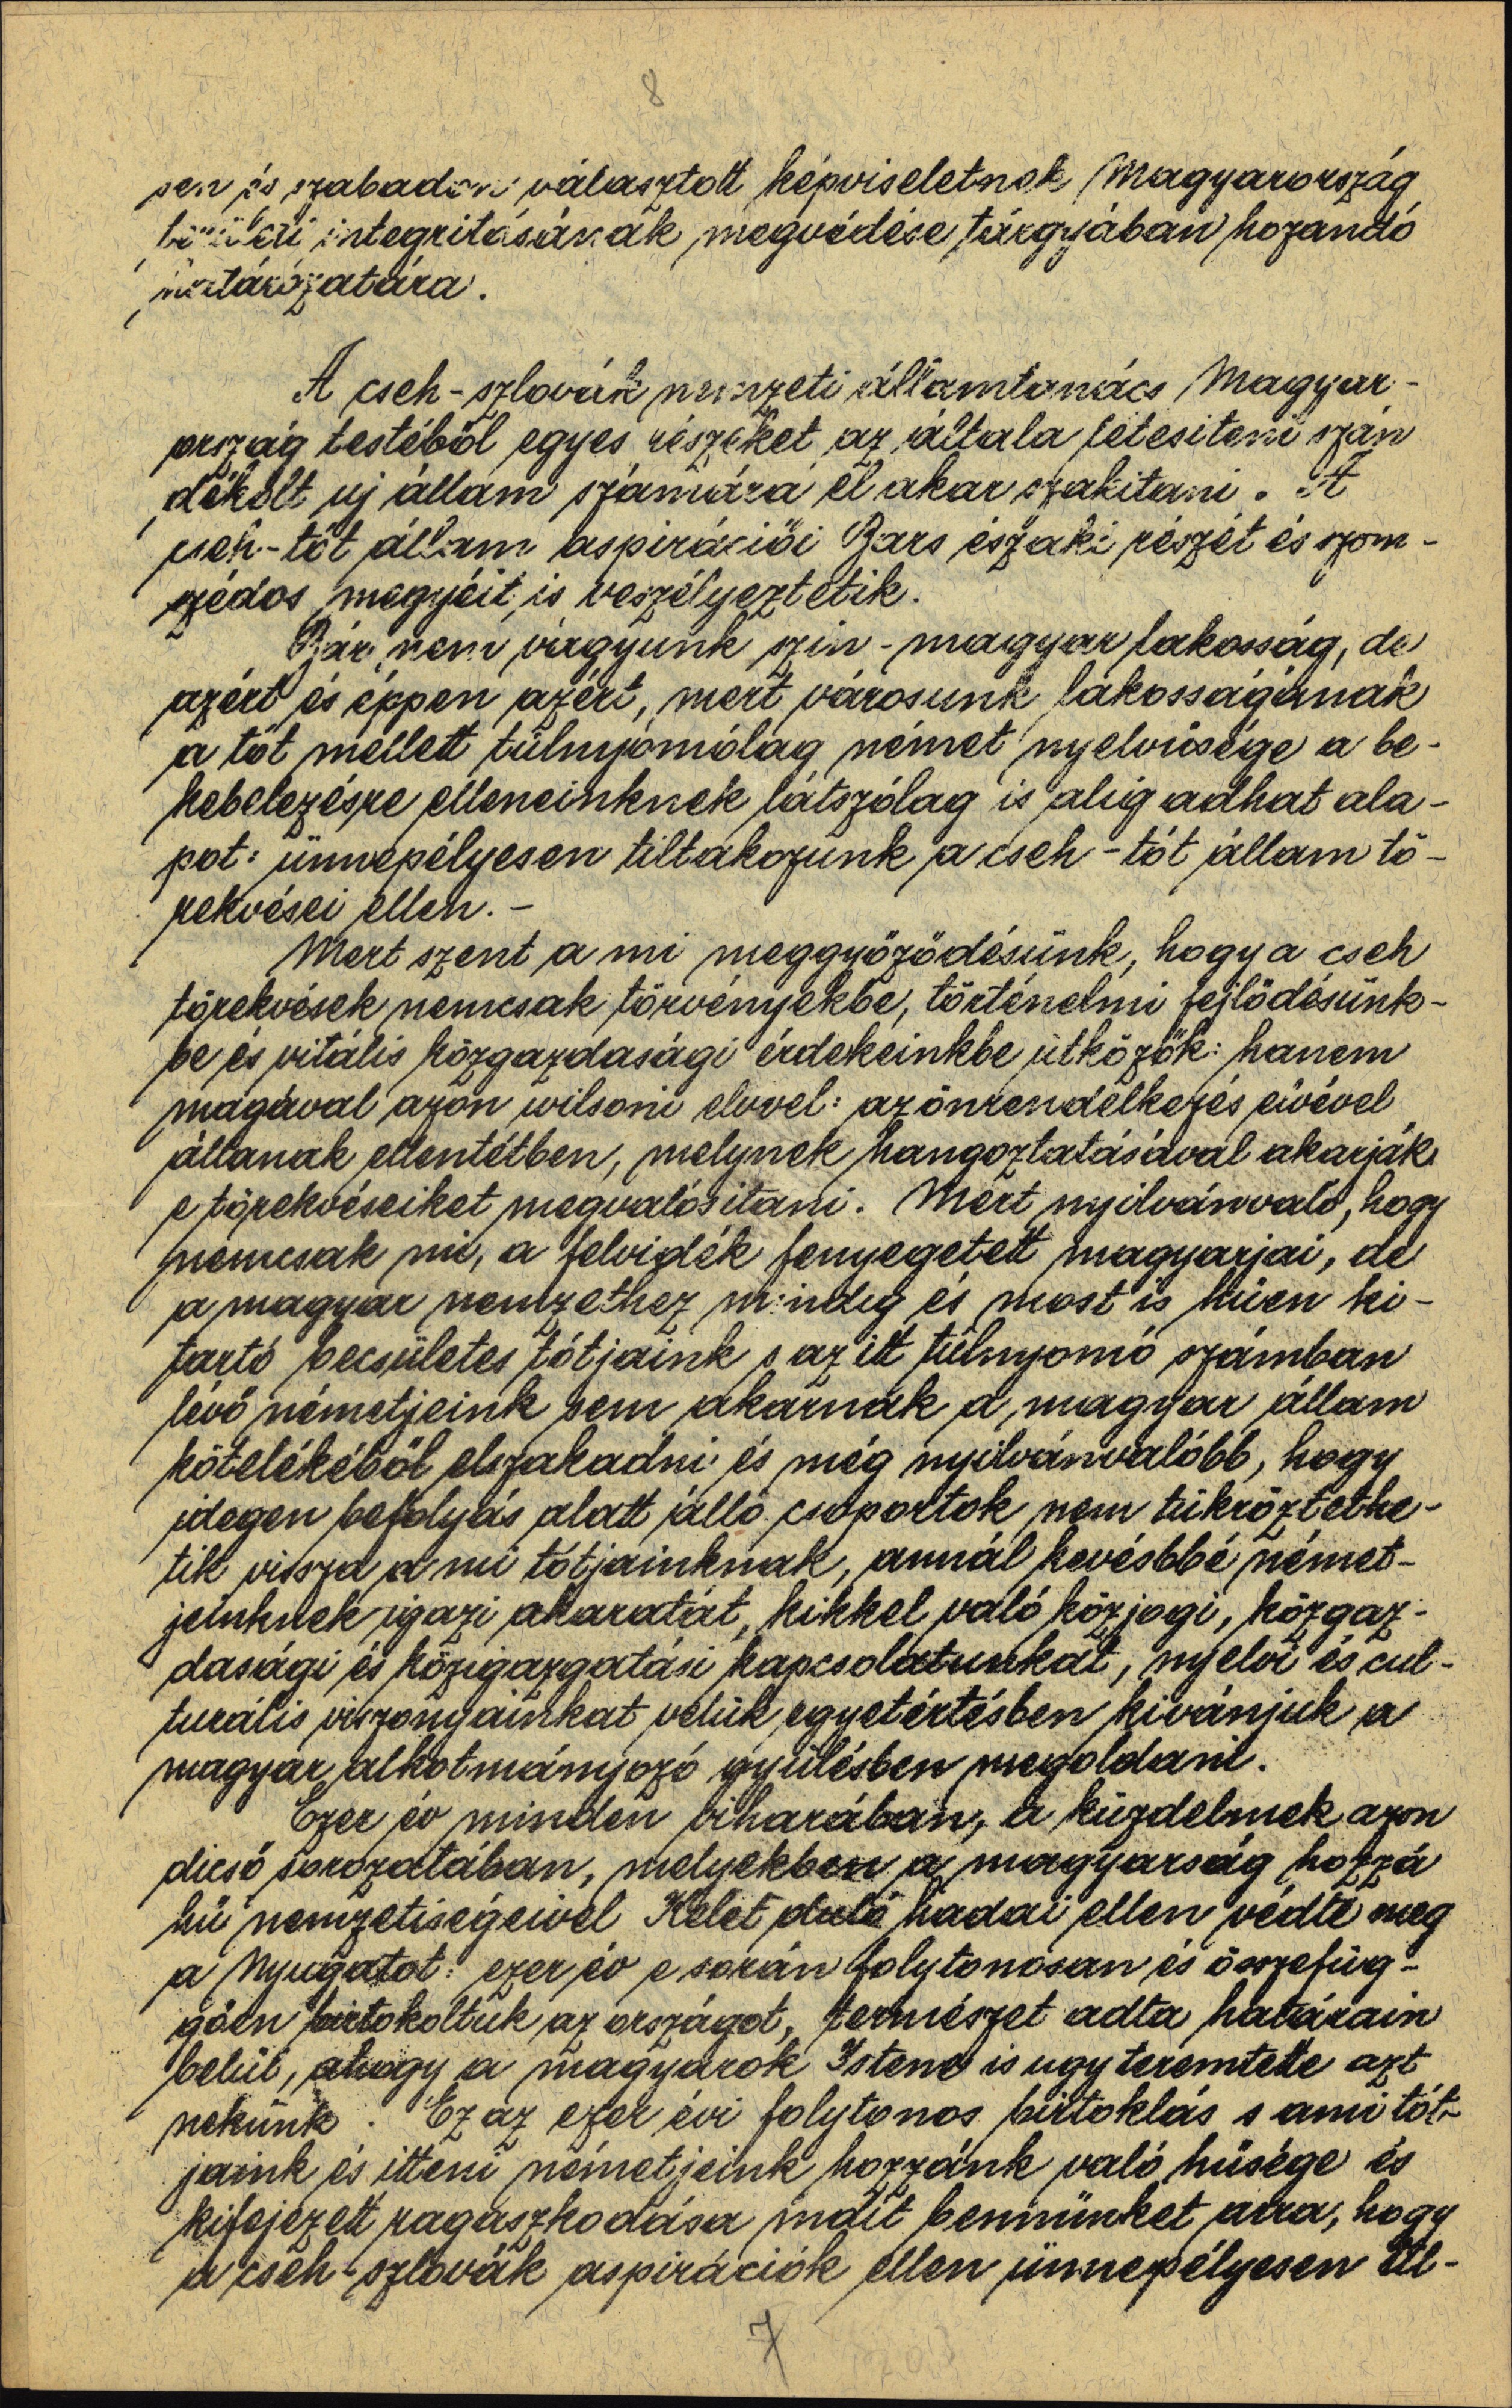 8
sen és szabadon választott képviseletnek Magyarország
területi integritásának megvédése tárgyában hozandó
határozatára.
A cseh-szlovák nemzeti államtanács Magyar-
ország testéből egyes részeket az általa létesiteni szán
dékolt uj állam számára el akar szakitani. A
cseh-tót állam aspirációi Bars északi részét és szom-
szédos megyéit is veszélyeztetik.
Bár nem vagyunk szin-magyar lakosság, de
azért és éppen azért, mert városunk lakosságának
a tót mellett túlnyomólag német nyelvüsége a be-
kebelezésre elleneinknek látszólag is alig adhat ala-
pot: ünnepélyesen tiltakozunk a cseh-tót állam tö-
rekvései ellen.-
Mert szent a mi meggyőződésünk, hogy a cseh
törekvések nemcsak törvényekbe, történelmi fejlődésünk-
be és vitális közgazdasági érdekeinkbe ütközők: hanem
magával azon wilsoni elvvel: az önrendelkezés elvével
állanak ellentétben, melynek hangoztatásával akarják
e törekvéseiket megvalósitani. Mert nyilvánvaló, hogy
nemcsak mi, a felvidék fenyegetett magyarjai, de
a magyar nemzethez mindig és most is hüen ki-
tartó becsületes tótjaink s az itt túlnyomó számban
lévő németjeink sem akarnak a magyar állam
kötelékéből elszakadni és még nyilvánvalóbb, hogy
idegen befolyás alatt álló csoportok nem tükröztethe-
tik vissza a mi tótjainknak, annál kevésbbé német-
jeinknek igazi akaratát, kikkel való közjogi, közgaz-
dasági és közigazgatási kapcsolatunkat, nyelvi és cul-
turális viszonyainkat velük egyetértésben kivánjuk a
magyar alkotmányozó gyülésben megoldani.
Ezer év minden viharában, a küzdelmek azon
dicső sorozatában, melyekben a magyarság hozzá
hü nemzetiségeivel Kelet duló hadai ellen védte meg
a Nyugatot: ezer év e során folytonosan és összefüg-
góen birtokoltuk az országot, természet adta határain
belül, ahogy a magyarok Istene is ugy teremtette azt
nekünk. Ez az ezer évi folytonos birtoklás s a mi tót-
jaink és itteni németjeink hozzánk való hűsége és
kifejezett ragaszkodása indit bennünket arra, hogy
a cseh-szlovák aspirációk ellen ünnepélyesen til-
7